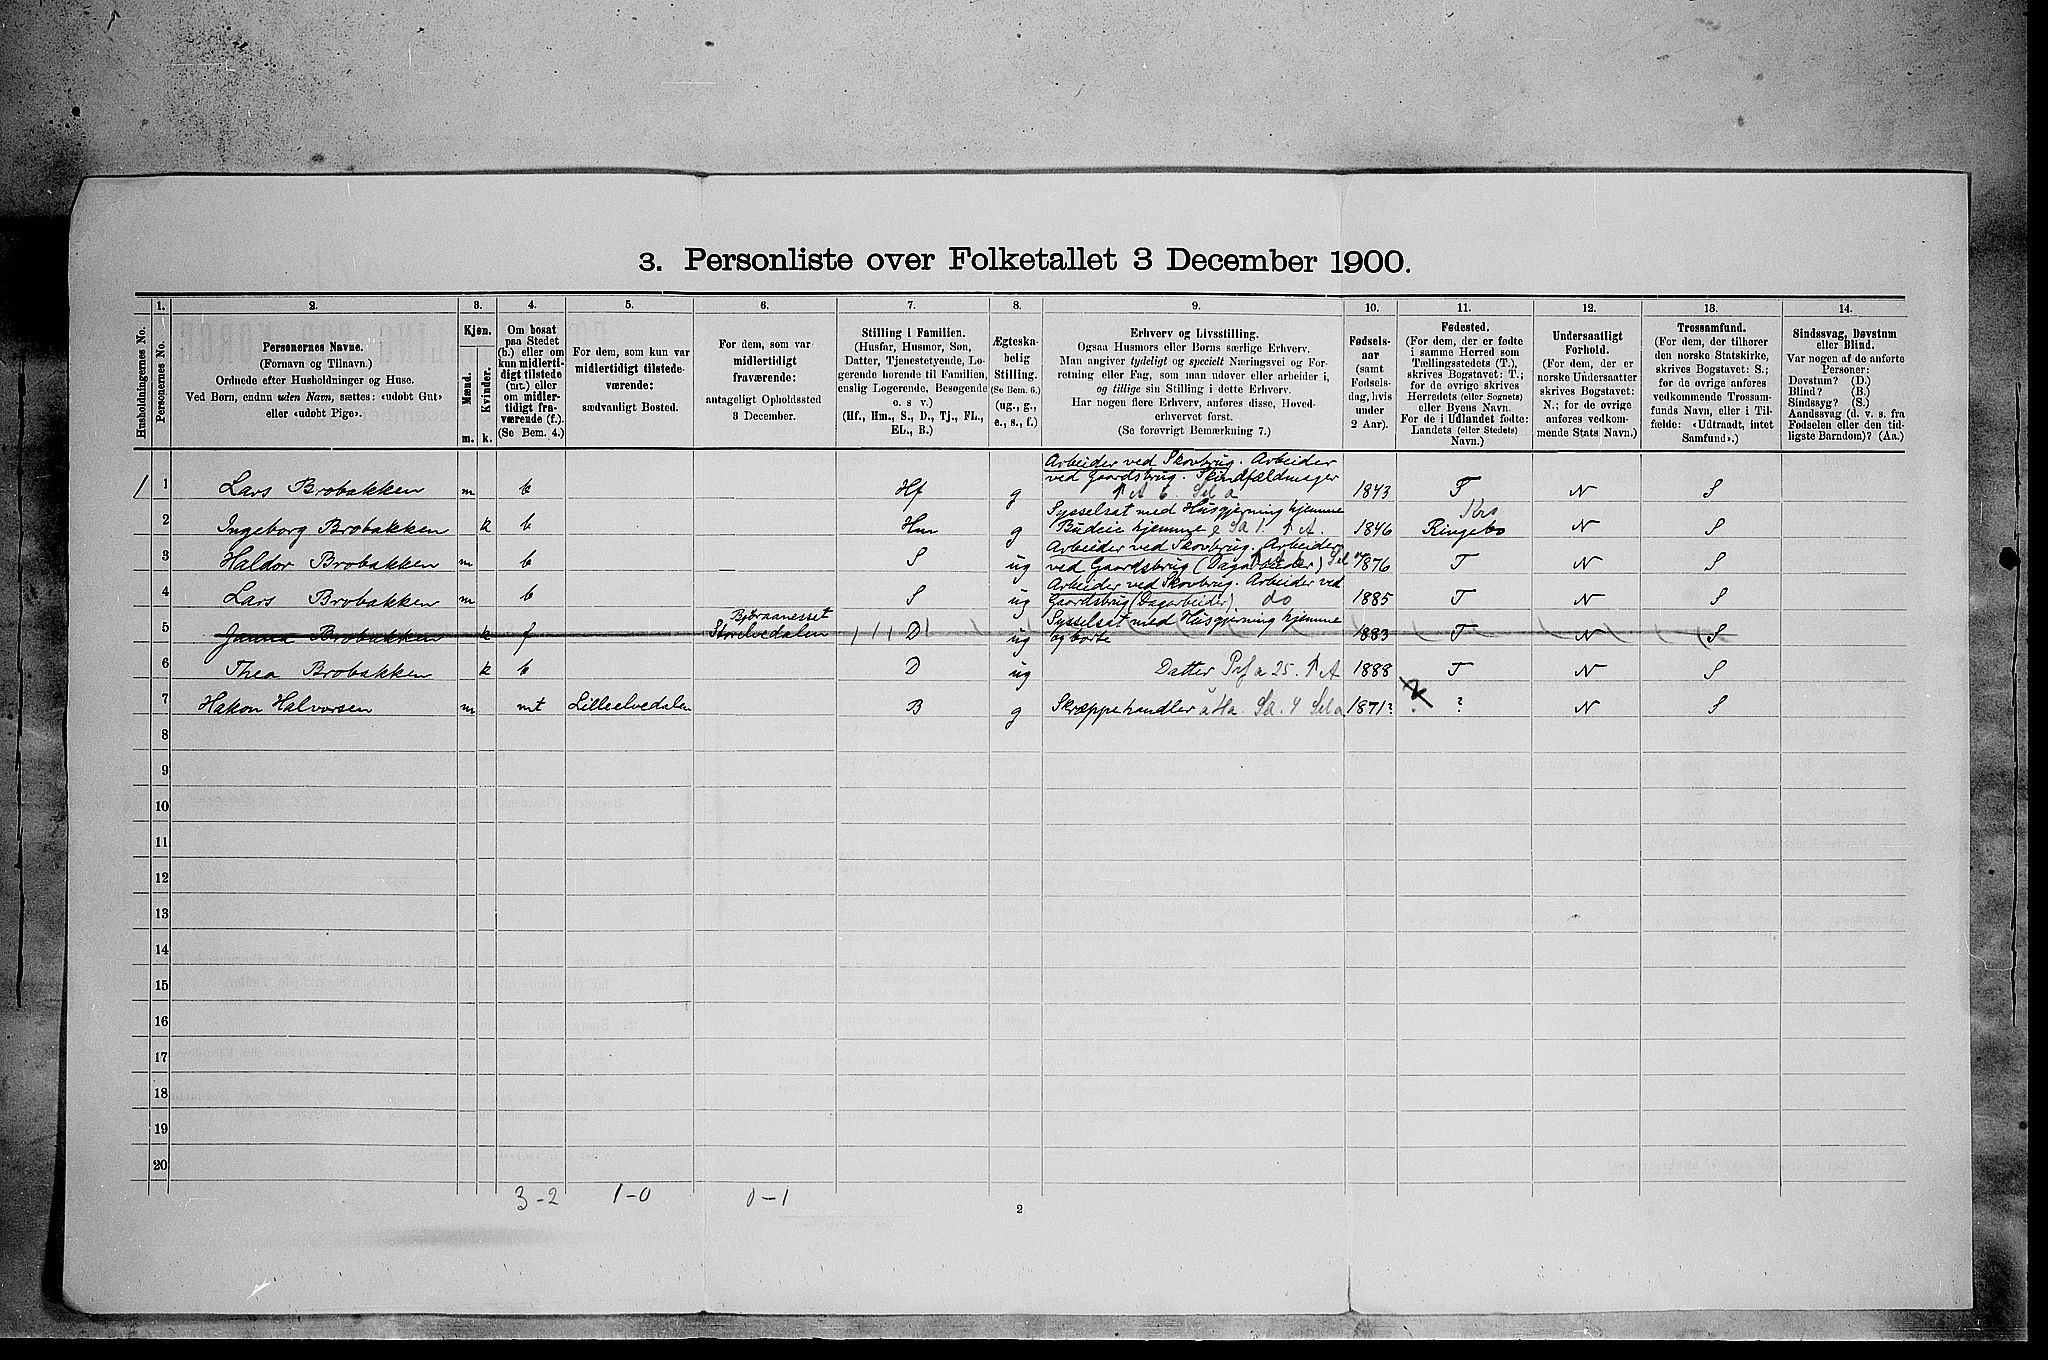 3. Personliste over Folketallet 3 December 1900.
Husholdningernes No.
1.
Personernes No.
2.
Personernes Navne.
(Fornavn og Tilnavn.)
Ordnede efter Husholdninger og Huse.
Ved Børn, endnu uden Navn, sættes: «udøbt Gut»
eller «udøbt Pige».
3.
Kjøn.
Mænd.
Kvinder.
m.
k.
4.
Om bosat
paa Stedet
(b.) eller om
kun midlerti-
digt tilstede
(mt.) eller
om midler-
tidigt fra-
værende (f.).
(Se Bem. 4.)
5.
For dem, som kun var
midlertidigt tilstede-
værende:
sædvanligt Bosted.
6.
For dem, som var
midlertidigt
fraværende:
antageligt Opholdssted
3 December.
7.
Stilling i Familien.
(Husfar, Husmor, Søn,
Datter, Tjenestetyende, Lo-
gerende hørende til Familien,
enslig Logerende, Besøgende
o. s v.)
(Hf., Hm., S., D., Tj., FL.,
EL., B.)
8.
Ægteska-
belig
Stilling.
(Se Bem. 6.)
(ug., g.,
e., s., f.)
9.
Erhverv og Livsstilling.
Ogsaa Husmors eller Børns særlige Erhverv.
Man angiver tydeligt og specielt Næringsvei og For-
retning eller Fag, som man udøver eller arbeider i,
og tillige sin Stilling i dette Erhverv.
Har nogen flere Erhverv, anføres disse, Hoved-
erhvervet først.
(Se forøvrigt Bemærkning 7.)
10.
Fødsels-
aar
(samt
Fødsels-
dag, hvis
under
2 Aar).
11.
Fødested.
(For dem, der er fødte
i samme Herred som
Tællingsstedets (T.),
skrives Bogstavet: T.;
for de øvrige skrives
Herredets (eller Sognets)
eller Byens Navn.
For de i Udlandet fødte:
Landets (eller Stedets)
Navn.)
12.
Undersaatligt
Forhold.
(For dem, der er
norske Undersaatter
skrives Bogstavet:
N.; for de øvrige
anføres vedkom-
mende Stats Navn.)
13.
Trossamfund.
(For dem, der tilhører
den norske Statskirke,
skrives Bogstavet: S.;
for de øvrige anføres
vedkommende Trossam-
funds Navn, eller i Til-
fælde: «Udtraadt, intet
Samfund».)
14.
Sindssvag, Døvstum
eller Blind.
Var nogen af de anførte
Personer:
Døvstum? (D.)
Blind? (B.)
Sindssyg? (S.)
Aandssvag (d. v. s. fra
Fødselen eller den tid-
ligste Barndom)? (Aa.)
1 1 Lars Brobakken m b Hf g Arbeider ved Skovbrug. Arbeider
ved Gaardsbrug. Skindfældmager 1843 T N S
2 Ingeborg Brobakken k b Hm g Sysselsat med Husgjerning hjemme
Budeie hjemme 1846 Ringebo N S
3 Haldor Brobakken m b S ug Arbeider ved Skovbrug. Arbeider
ved Gaardsbrug (Dagarbeider) 1876 T N S
4 Lars Brobakken m b S ug Arbeider ved Skovbrug. Arbeider ved
Gaardsbrug (Dagarbeider) do 1885 T N S
5 Janna Brobakken k f Bjøraanesset
Storelvedalen D ug Sysselsat med Husgjerning hjemme
og borte 1883 T N S
6 Thea Brobakken k b D ug Datter 1888 T N S
7 Hakon Halvorsen m mt Lilleelvedalen B g Skræppehandler 1871? ? N S
8
9
10
11
12
13
14
15
16
17
18
19
20
3-2 1-0 0-1
2